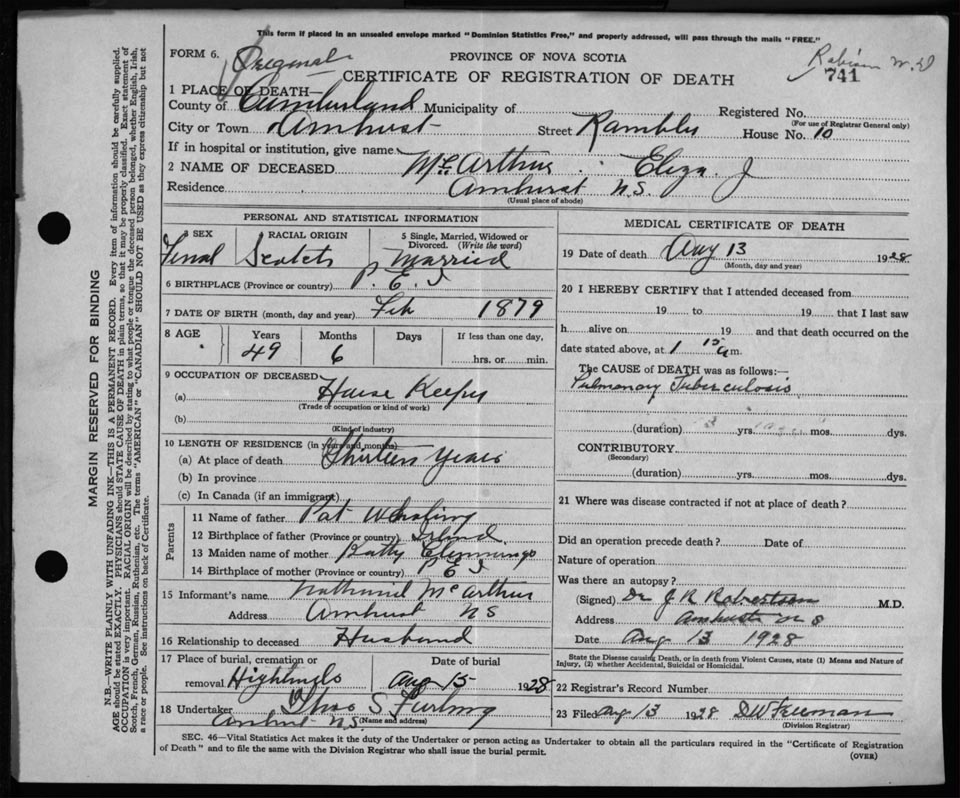 This form if placed in an unsealed envelope marked "Dominion Statistics Free," and properly addressed, will pass through the mails "FREE."
FORM 6. Original PROVINCE OF NOVA SCOTIA
CERTIFICATE OF REGISTRATION OF DEATH 741
1 PLACE OF DEATH—
County of Cumberland Municipality of Registered No.
(For use of Registrar General only)
City or Town Amhurst Street Rambler House No. 10
If in hospital or institution, give name
2 NAME OF DECEASED McArthur Eliza J
Residence Amhurst N.S.
(Usual place of abode)
PERSONAL AND STATISTICAL INFORMATION
3 SEX RACIAL ORIGIN 5 Single, Married, Widowed or Divorced. (Write the word)
Femal Scotch Married
6 BIRTHPLACE (Province or country) P. E. I
7 DATE OF BIRTH (month, day and year) Feb 1879
8 AGE Years Months Days If less than one day,
49 6 hrs. or min.
9 OCCUPATION OF DECEASED
(a) House Keeper
(Trade or occupation or kind of work)
(b)
(Kind of industry)
10 LENGTH OF RESIDENCE (in years and months)
(a) At place of death Thirteen years
(b) In province
(c) In Canada (if an immigrant)
Parents
11 Name of father Pat
12 Birthplace of father (Province or country) Irland.
13 Maiden name of mother Katty
14 Birthplace of mother (Province or country) P E I
15 Informant's name Nathaniel McArthur
Address Amhurst NS
16 Relationship to deceased Husband
17 Place of burial, cremation or removal Date of burial
Highlands Aug 15 1928
18 Undertaker Thos S Furlong
Amhurst N.S. (Name and address)
MEDICAL CERTIFICATE OF DEATH
19 Date of death Aug 13 1928
(Month, day and year)
20 I HEREBY CERTIFY that I attended deceased from
19 to 19 that I last saw
h alive on 19 and that death occurred on the
date stated above, at 1 15 a m.
The CAUSE of DEATH was as follows:—
Pulmonary Tuberculosis
(duration) yrs. mos. dys.
CONTRIBUTORY
(Secondary)
(duration) yrs. mos. dys.
21 Where was disease contracted if not at place of death?
Did an operation precede death? Date of
Nature of operation
Was there an autopsy?
(Signed) Dr J R Robertson M.D.
Address Amhurst N S
Date Aug 13 1928
State the Disease causing Death, or in death from Violent Causes, state (1) Means and Nature of Injury, (2) whether Accidental, Suicidal or Homicidal.
22 Registrar's Record Number
23 Filed Aug 13 1928 D W Freeman
(Division Registrar)
SEC. 46—Vital Statistics Act makes it the duty of the Undertaker or person acting as Undertaker to obtain all the particulars required in the "Certificate of Registration
of Death" and to file the same with the Division Registrar who shall issue the burial permit.
(OVER)
MARGIN RESERVED FOR BINDING
N.B.—WRITE PLAINLY WITH UNFADING INK—THIS IS A PERMANENT RECORD. Every item of information should be carefully supplied.
AGE should be stated EXACTLY. PHYSICIANS should STATE CAUSE OF DEATH in plain terms, so that it may be properly classified. Exact statement of
OCCUPATION is very important. RACIAL ORIGIN will be described by stating to what people or tongue the deceased person belonged, whether English, Irish,
Scotch, French, German, Russian, Ruthenian, etc. The terms "AMERICAN" or "CANADIAN" SHOULD NOT BE USED as they express citizenship but not
a race or people. See instructions on back of Certificate.